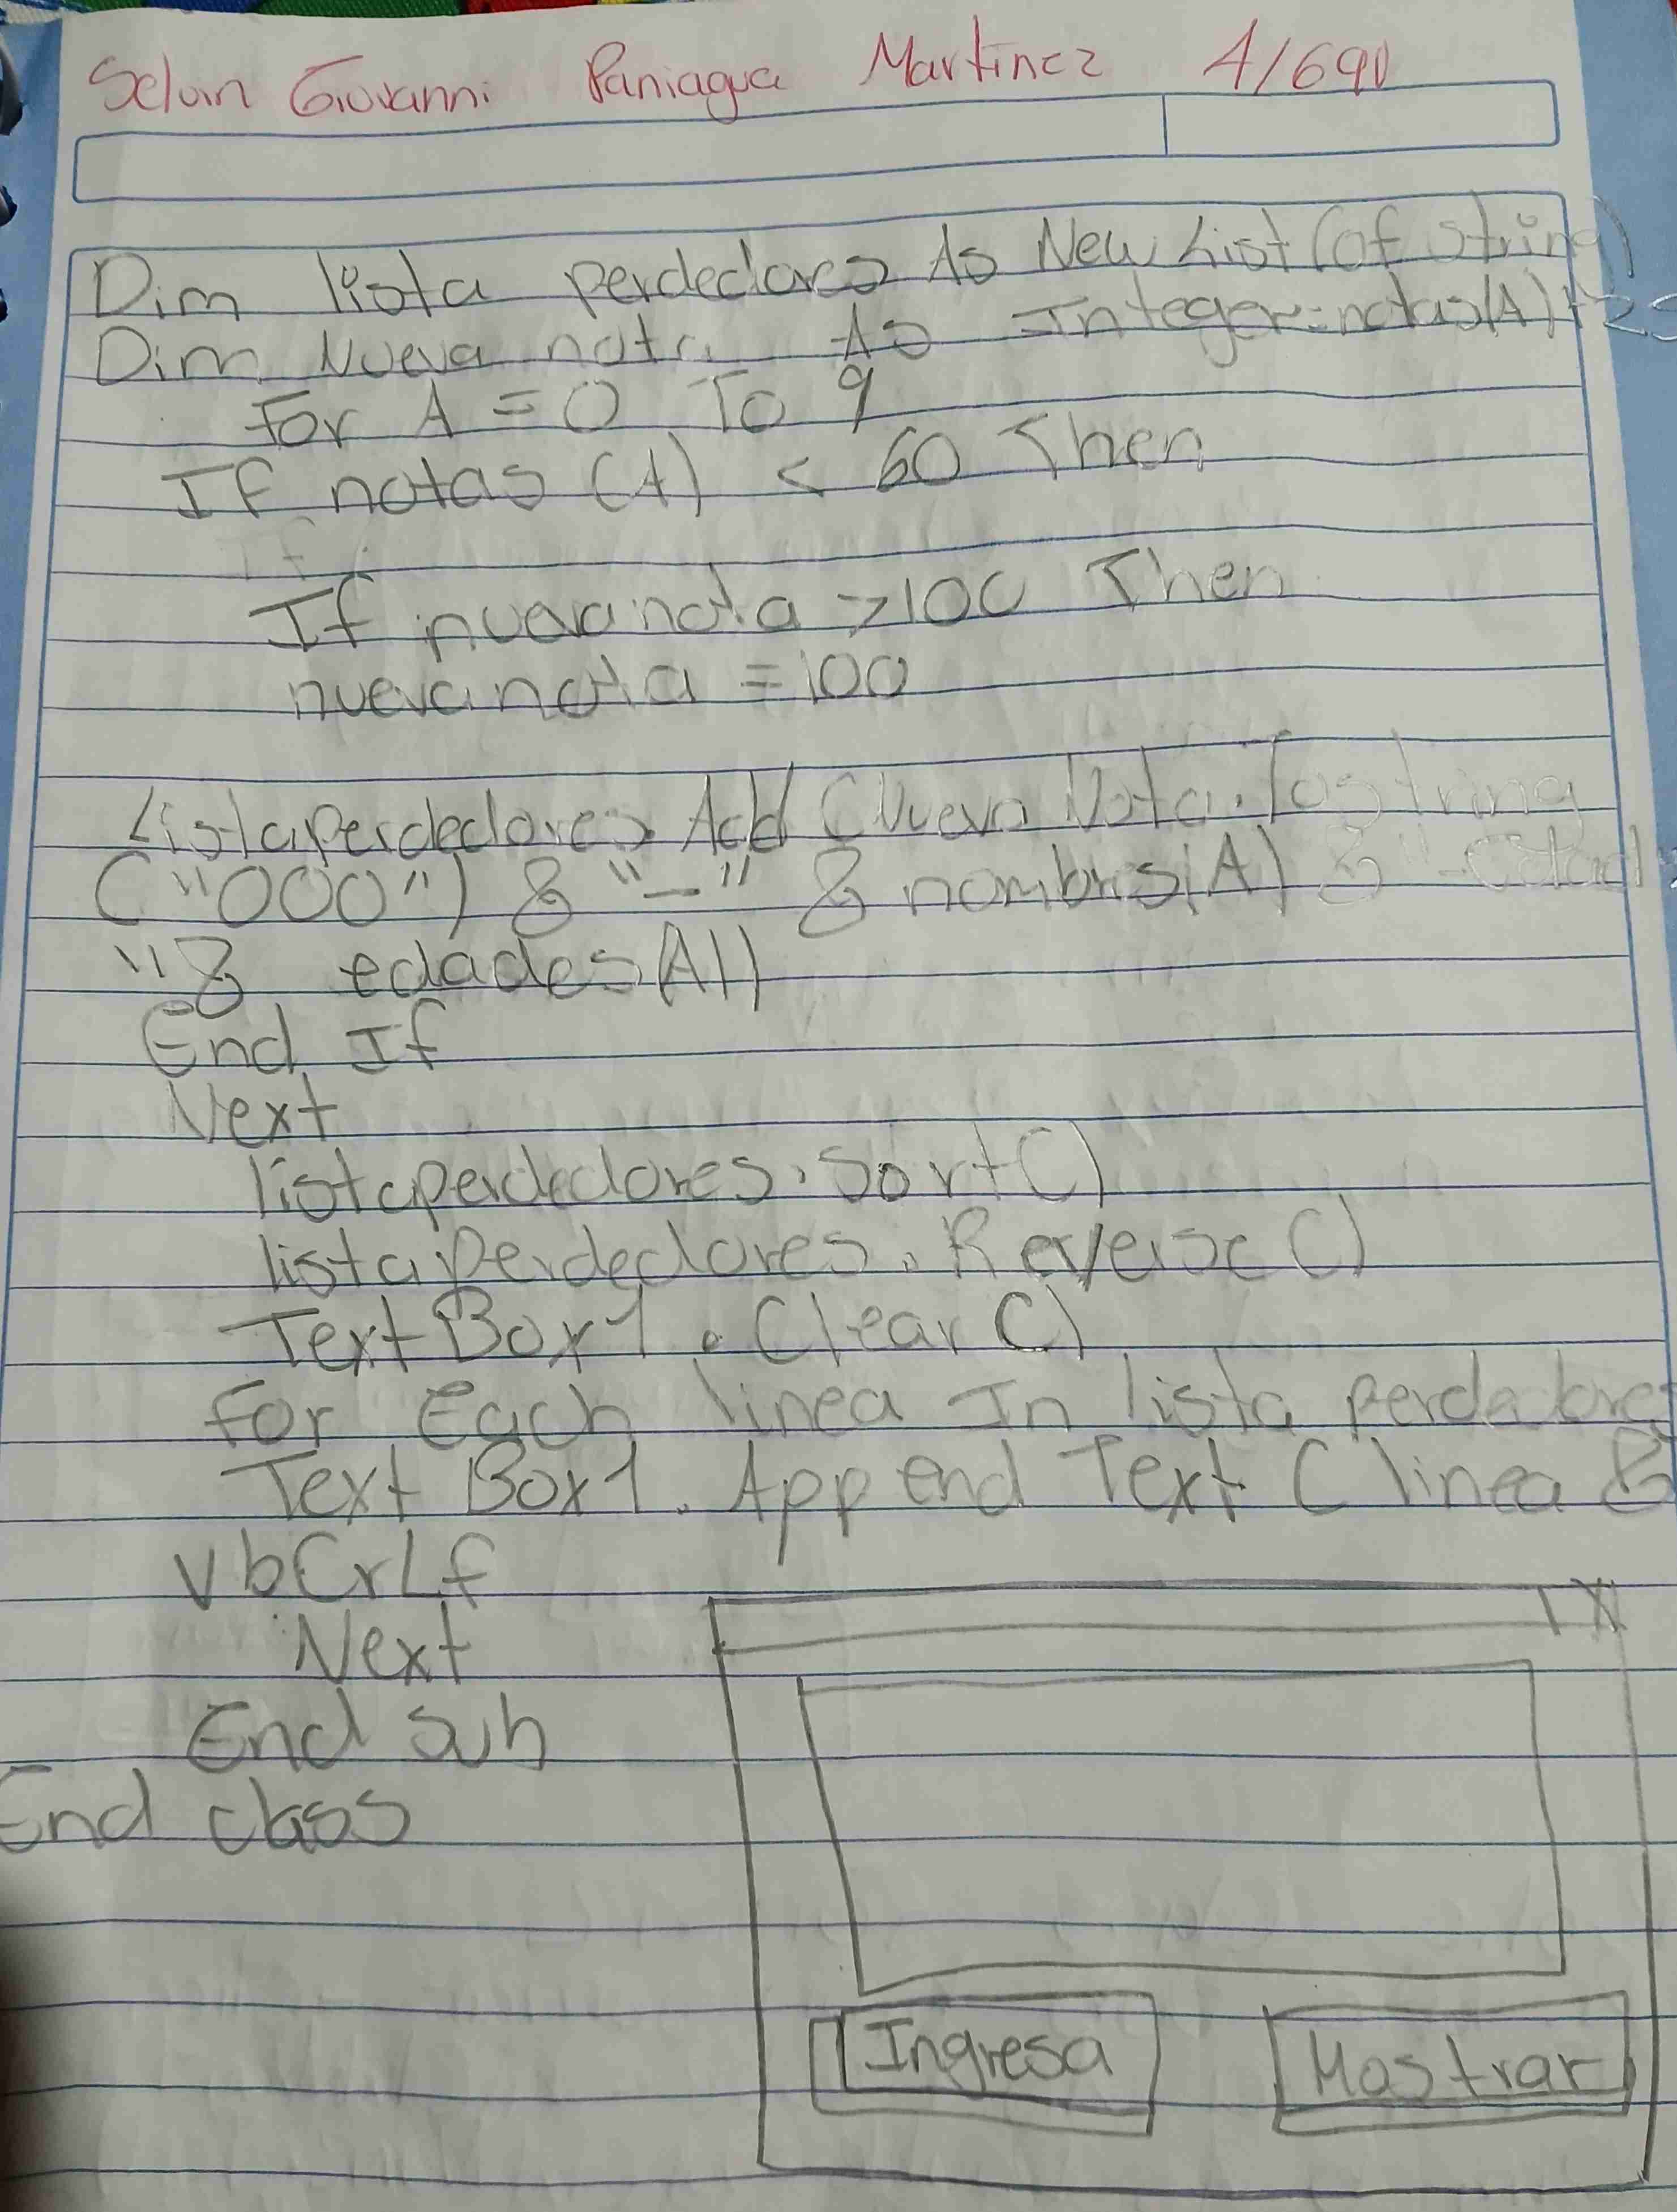 Selvin Giovanni Paniagua Martinez 4/690
Dim lista perdedores As New List (of string)
Dim Nueva nota As Integer=notas(A)+25
For A = 0 To 9
If notas (A) < 60 Then
If nueva nota >100 Then
nueva nota = 100
Listaperdedores. Add (Nueva Nota.Tostring
("000") & "-" & nombres(A) & "-edad
"& edades(A))
End If
Next
listaperdedores.Sort()
listaperdedores.Reverse()
TextBox1.Clear()
For Each linea In lista perdedores
Text Box1.App end Text (linea &
vbCrLf
Next
End Sub
End class
Ingresa
Mostrar